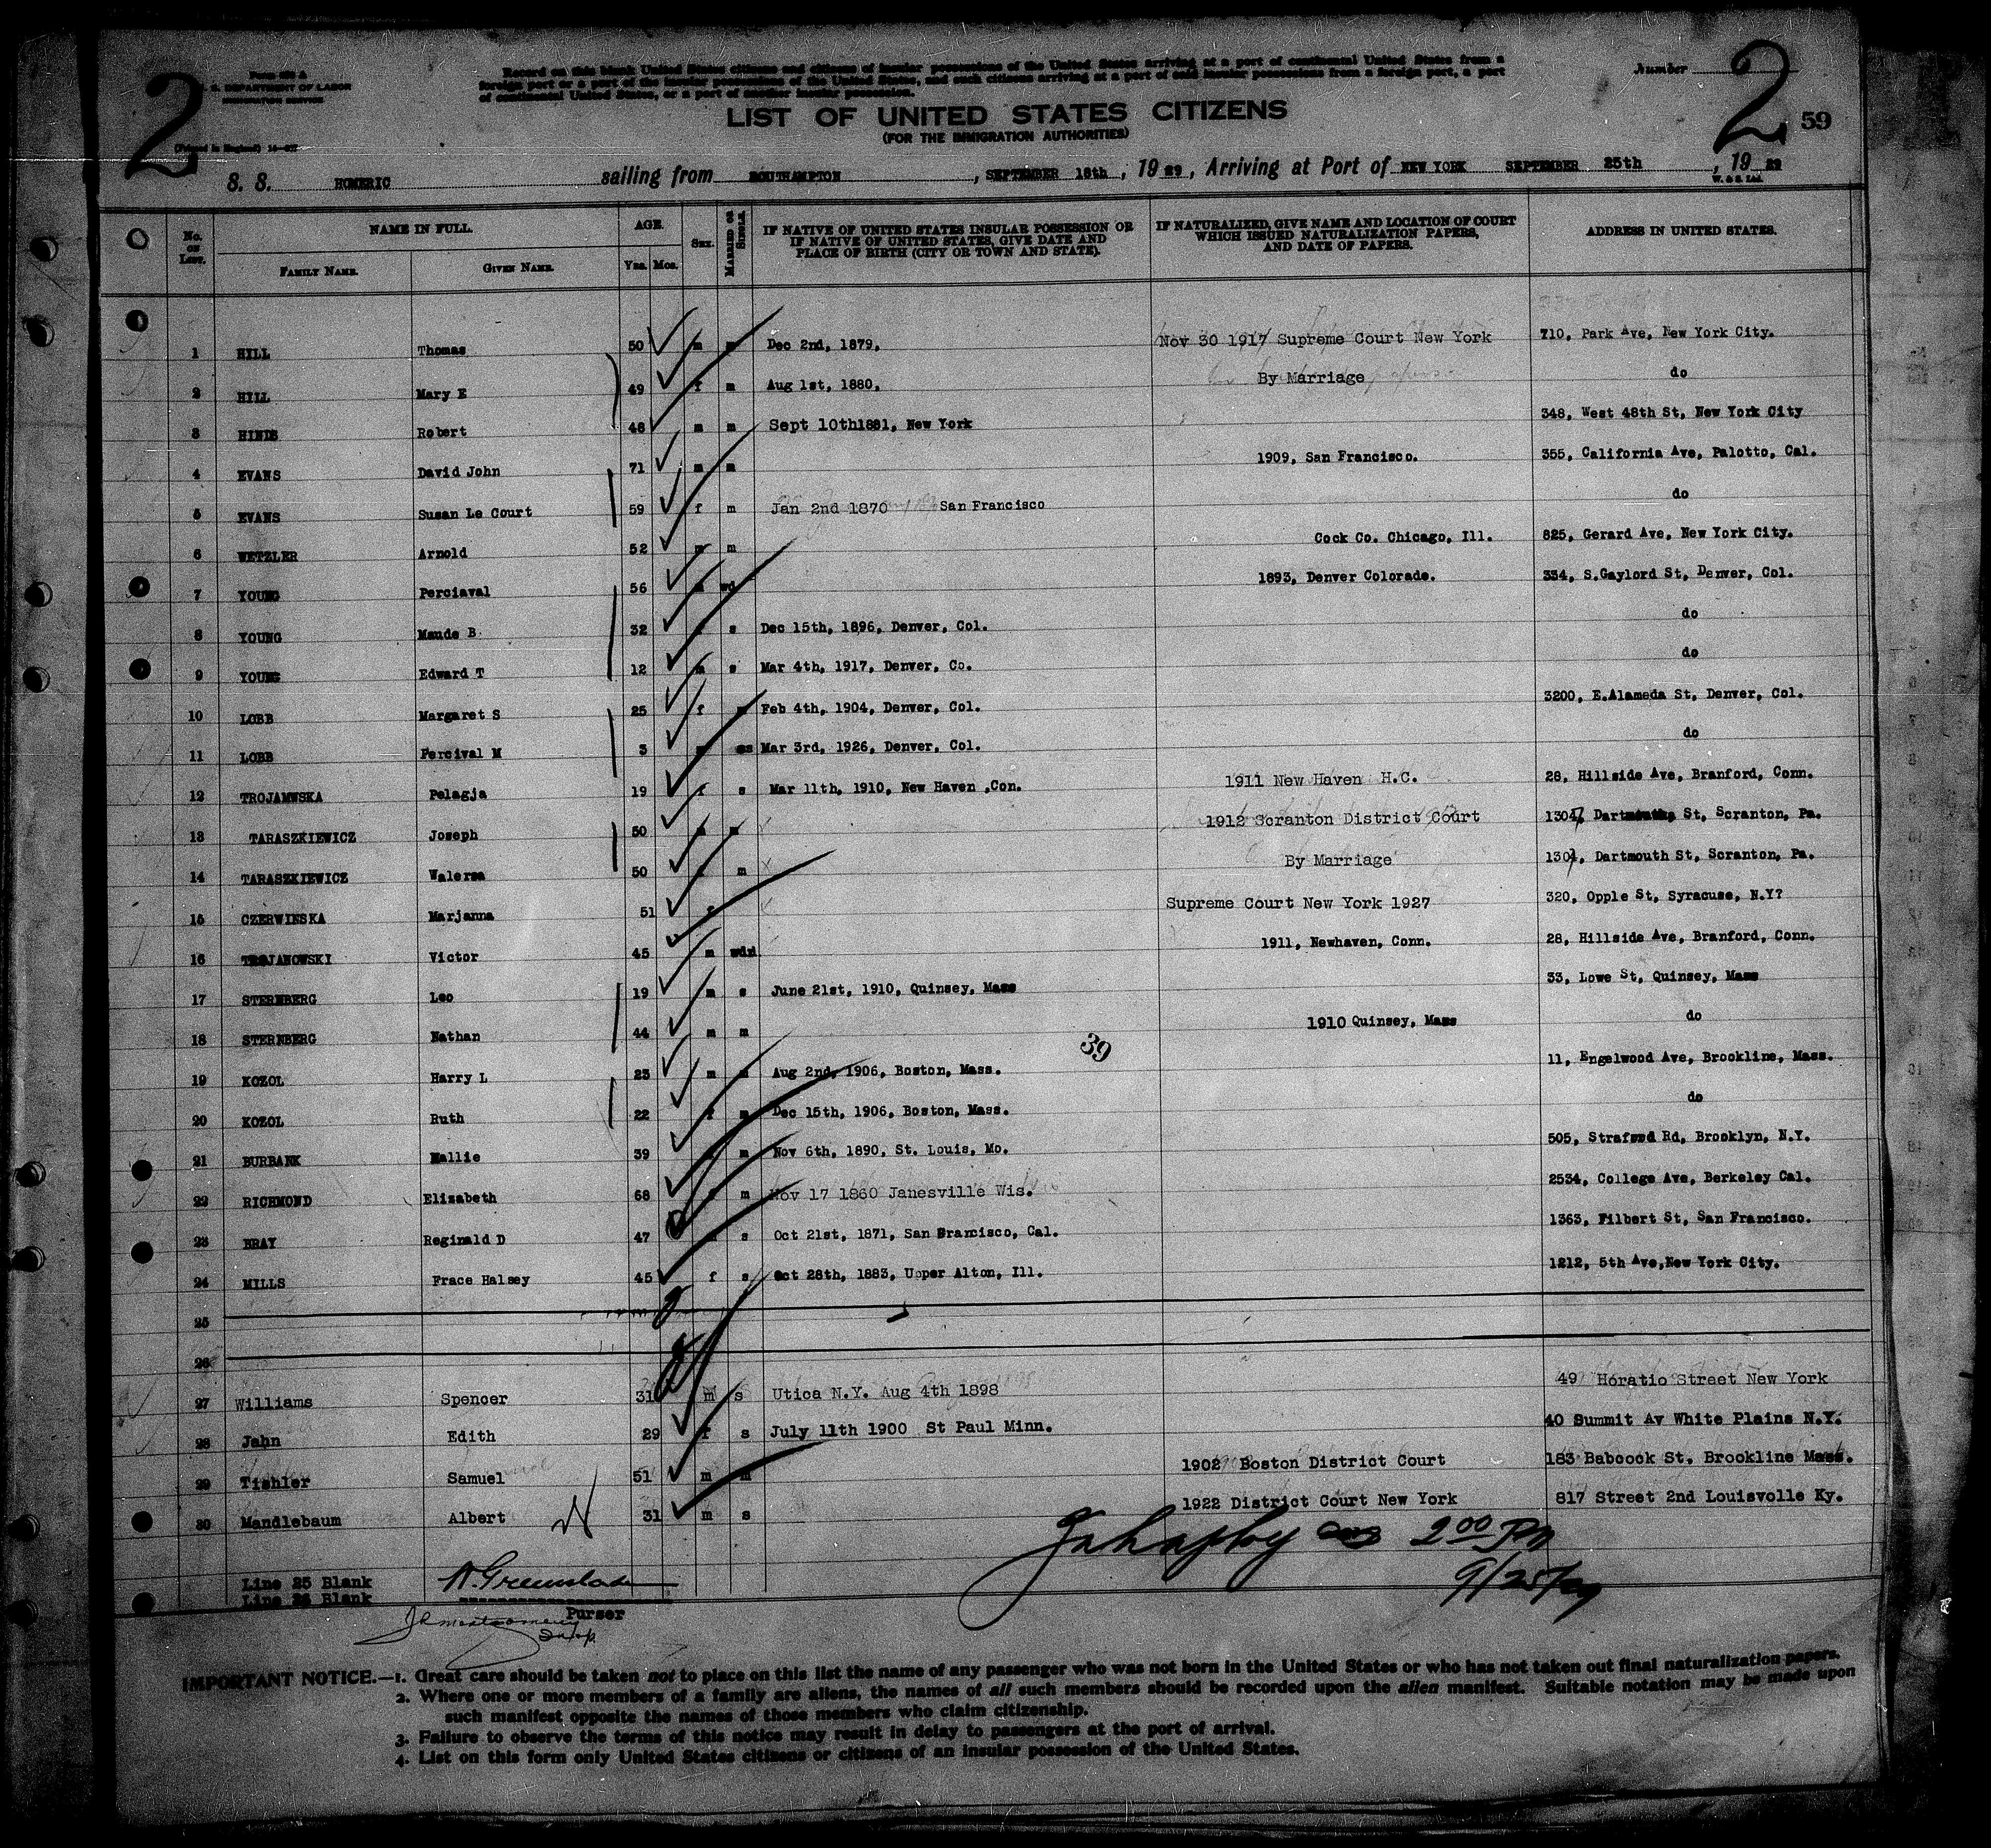 2
Form 630 A
U. S. DEPARTMENT OF LABOR
IMMIGRATION SERVICE
(Printed in England)
Record on this blank United States citizens and citizens of insular possessions of the United States arriving at a port of continental United States from a
foreign port or a port of the insular possessions of the United States, and such citizens arriving at a port of said insular possessions from a foreign port, a port
of continental United States, or a port of another insular possession.
Number
2
59
LIST OF UNITED STATES CITIZENS
(FOR THE IMMIGRATION AUTHORITIES)
S. S. HOMERIC sailing from SOUTHAMPTON, SEPTEMBER 18th, 1929, Arriving at Port of NEW YORK SEPTEMBER 25th, 1929
W. & S. Ltd.
No. on List. NAME IN FULL. AGE. Sex. Married or Single. IF NATIVE OF UNITED STATES INSULAR POSSESSION OR IF NATIVE OF UNITED STATES, GIVE DATE AND PLACE OF BIRTH (CITY OR TOWN AND STATE). IF NATURALIZED, GIVE NAME AND LOCATION OF COURT WHICH ISSUED NATURALIZATION PAPERS, AND DATE OF PAPERS. ADDRESS IN UNITED STATES.
Family Name. Given Name. Yrs. Mos.
1 HILL Thomas 50 m m Dec 2nd, 1879, Nov 30 1917 Supreme Court New York 710, Park Ave, New York City.
2 HILL Mary E 49 f m Aug 1st, 1880, By Marriage do
3 HINDS Robert 48 m m Sept 10th1881, New York 348, West 48th St, New York City
4 EVANS David John 71 m m 1909, San Francisco. 355, California Ave, Palotto, Cal.
5 EVANS Susan Le Court 59 f m Jan 2nd 1870 San Francisco do
6 WETZLER Arnold 52 m m Cock Co. Chicago, Ill. 825, Gerard Ave, New York City.
7 YOUNG Perciaval 56 m wd 1893, Denver Colorado. 334, S.Gaylord St, Denver, Col.
8 YOUNG Maude B 32 f s Dec 15th, 1896, Denver, Col. do
9 YOUNG Edward T 12 m s Mar 4th, 1917, Denver, Co. do
10 LOBB Margaret S 25 f m Feb 4th, 1904, Denver, Col. 3200, E.Alameda St, Denver, Col.
11 LOBB Percival M 3 m s Mar 3rd, 1926, Denver, Col. do
12 TROJAMWSKA Pelagja 19 f s Mar 11th, 1910, New Haven ,Con. 1911 New Haven H.C. 28, Hillside Ave, Branford, Conn.
13 TARASZKIEWICZ Joseph 50 m m 1912 Scranton District Court 1304, Dartmouth St, Scranton, Pa.
14 TARASZKIEWICZ Walersa 50 f m By Marriage 1304, Dartmouth St, Scranton, Pa.
15 CZERWINSKA Marjanna 51 f Supreme Court New York 1927 320, Opple St, Syracuse, N.Y?
16 TROJANOWSKI Victor 45 m wdn 1911, Newhaven, Conn. 28, Hillside Ave, Branford, Conn.
17 STERNBERG Leo 19 m s June 21st, 1910, Quinsey, Mass 33, Lowe St, Quinsey, Mass
18 STERNBERG Nathan 44 m m 1910 Quinsey, Mass do
39
19 KOZOL Harry L 23 m m Aug 2nd, 1906, Boston, Mass. 11, Engelwood Ave, Brookline, Mass.
20 KOZOL Ruth 22 f m Dec 15th, 1906, Boston, Mass. do
21 BURBANK Mallie 39 m Nov 6th, 1890, St. Louis, Mo. 505, Straford Rd, Brooklyn, N.Y.
22 RICHMOND Elizabeth 68 f m Nov 17 1860 Janesville Wis. 2534, College Ave, Berkeley Cal.
23 BRAY Reginald D 47 s Oct 21st, 1871, San Francisco, Cal. 1363, Filbert St, San Francisco.
24 MILLS Frace Halsey 45 f s Oct 28th, 1883, Upper Alton, Ill. 1212, 5th Ave,New York City.
25
26
27 Williams Spencer 31 m s Utica N.Y. Aug 4th 1898 49 Horatio Street New York
28 Jahn Edith 29 f s July 11th 1900 St Paul Minn. 40 Summit Av White Plains N.Y.
29 Tishler Samuel 51 m m 1902 Boston District Court 183 Babcock St, Brookline Mass.
30 Mandlebaum Albert 31 m s 1922 District Court New York 817 Street 2nd Louisvolle Ky.
2 00 PM
9/25/29
Line 25 Blank
Line 26 Blank
Purser
IMPORTANT NOTICE.—1. Great care should be taken not to place on this list the name of any passenger who was not born in the United States or who has not taken out final naturalization papers.
2. Where one or more members of a family are aliens, the names of all such members should be recorded upon the alien manifest. Suitable notation may be made upon
such manifest opposite the names of those members who claim citizenship.
3. Failure to observe the terms of this notice may result in delay to passengers at the port of arrival.
4. List on this form only United States citizens or citizens of an insular possession of the United States.